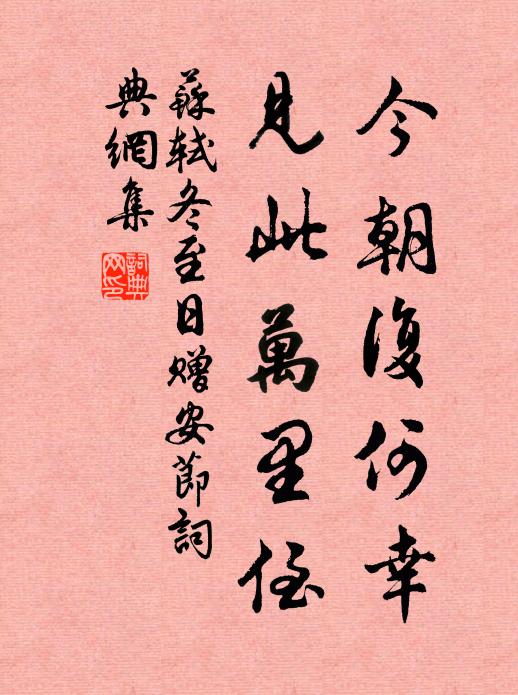 今朝復何幸
見此萬里侄
蘇軾冬至日贈安節詞
典網集
詞典網印